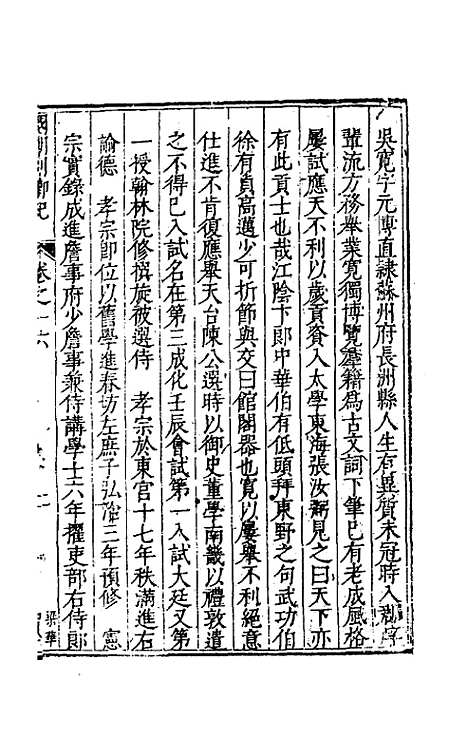 吳寬字元博直隸蘇州府長洲縣人生有異質未冠時入
輩流方務舉業寬獨博覽羣籍為古文詞下筆已有老成風格
屢試應天不利以歲貢資入太學東海張汝弼見之曰天下亦
有此貢士也哉江陰卞郎中華伯有低頭拜東野之句武功伯
徐有貞高邁少可折節與交曰館閣器也寬以屢舉不利絕意
仕進不肯復應舉天台陳公選時以御史董學南畿以禮敦遣
之不得已入試名在第三成化壬辰會試第一入試大廷又第
一授翰林院修撰旋被選侍 孝宗於東宮十七年秩滿進右
諭德 孝宗即位以舊學進春坊左庶子弘治三年預修 憲
宗實錄成進詹事府少詹事兼侍講學士六年擢吏部右侍郎
國朝列卿紀 卷之十六